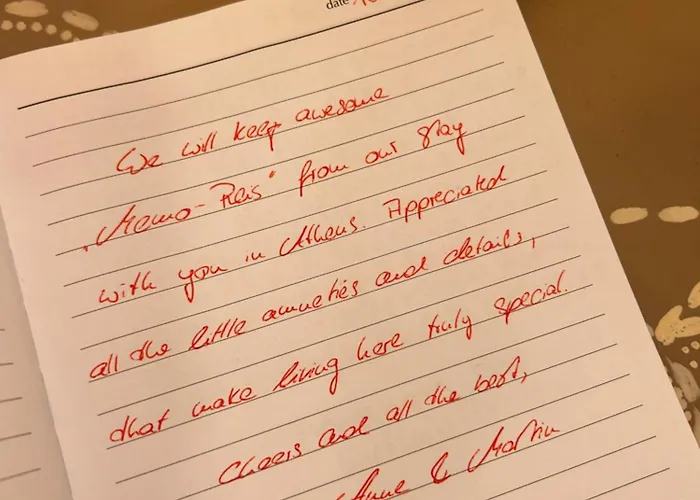 date
We will keep awesome
„Memo-Reis“ from our stay
with you in Athens. Appreciated
all the little ameneties and details,
that make living here truly special.
Cheers and all the best,
Anne & Martin